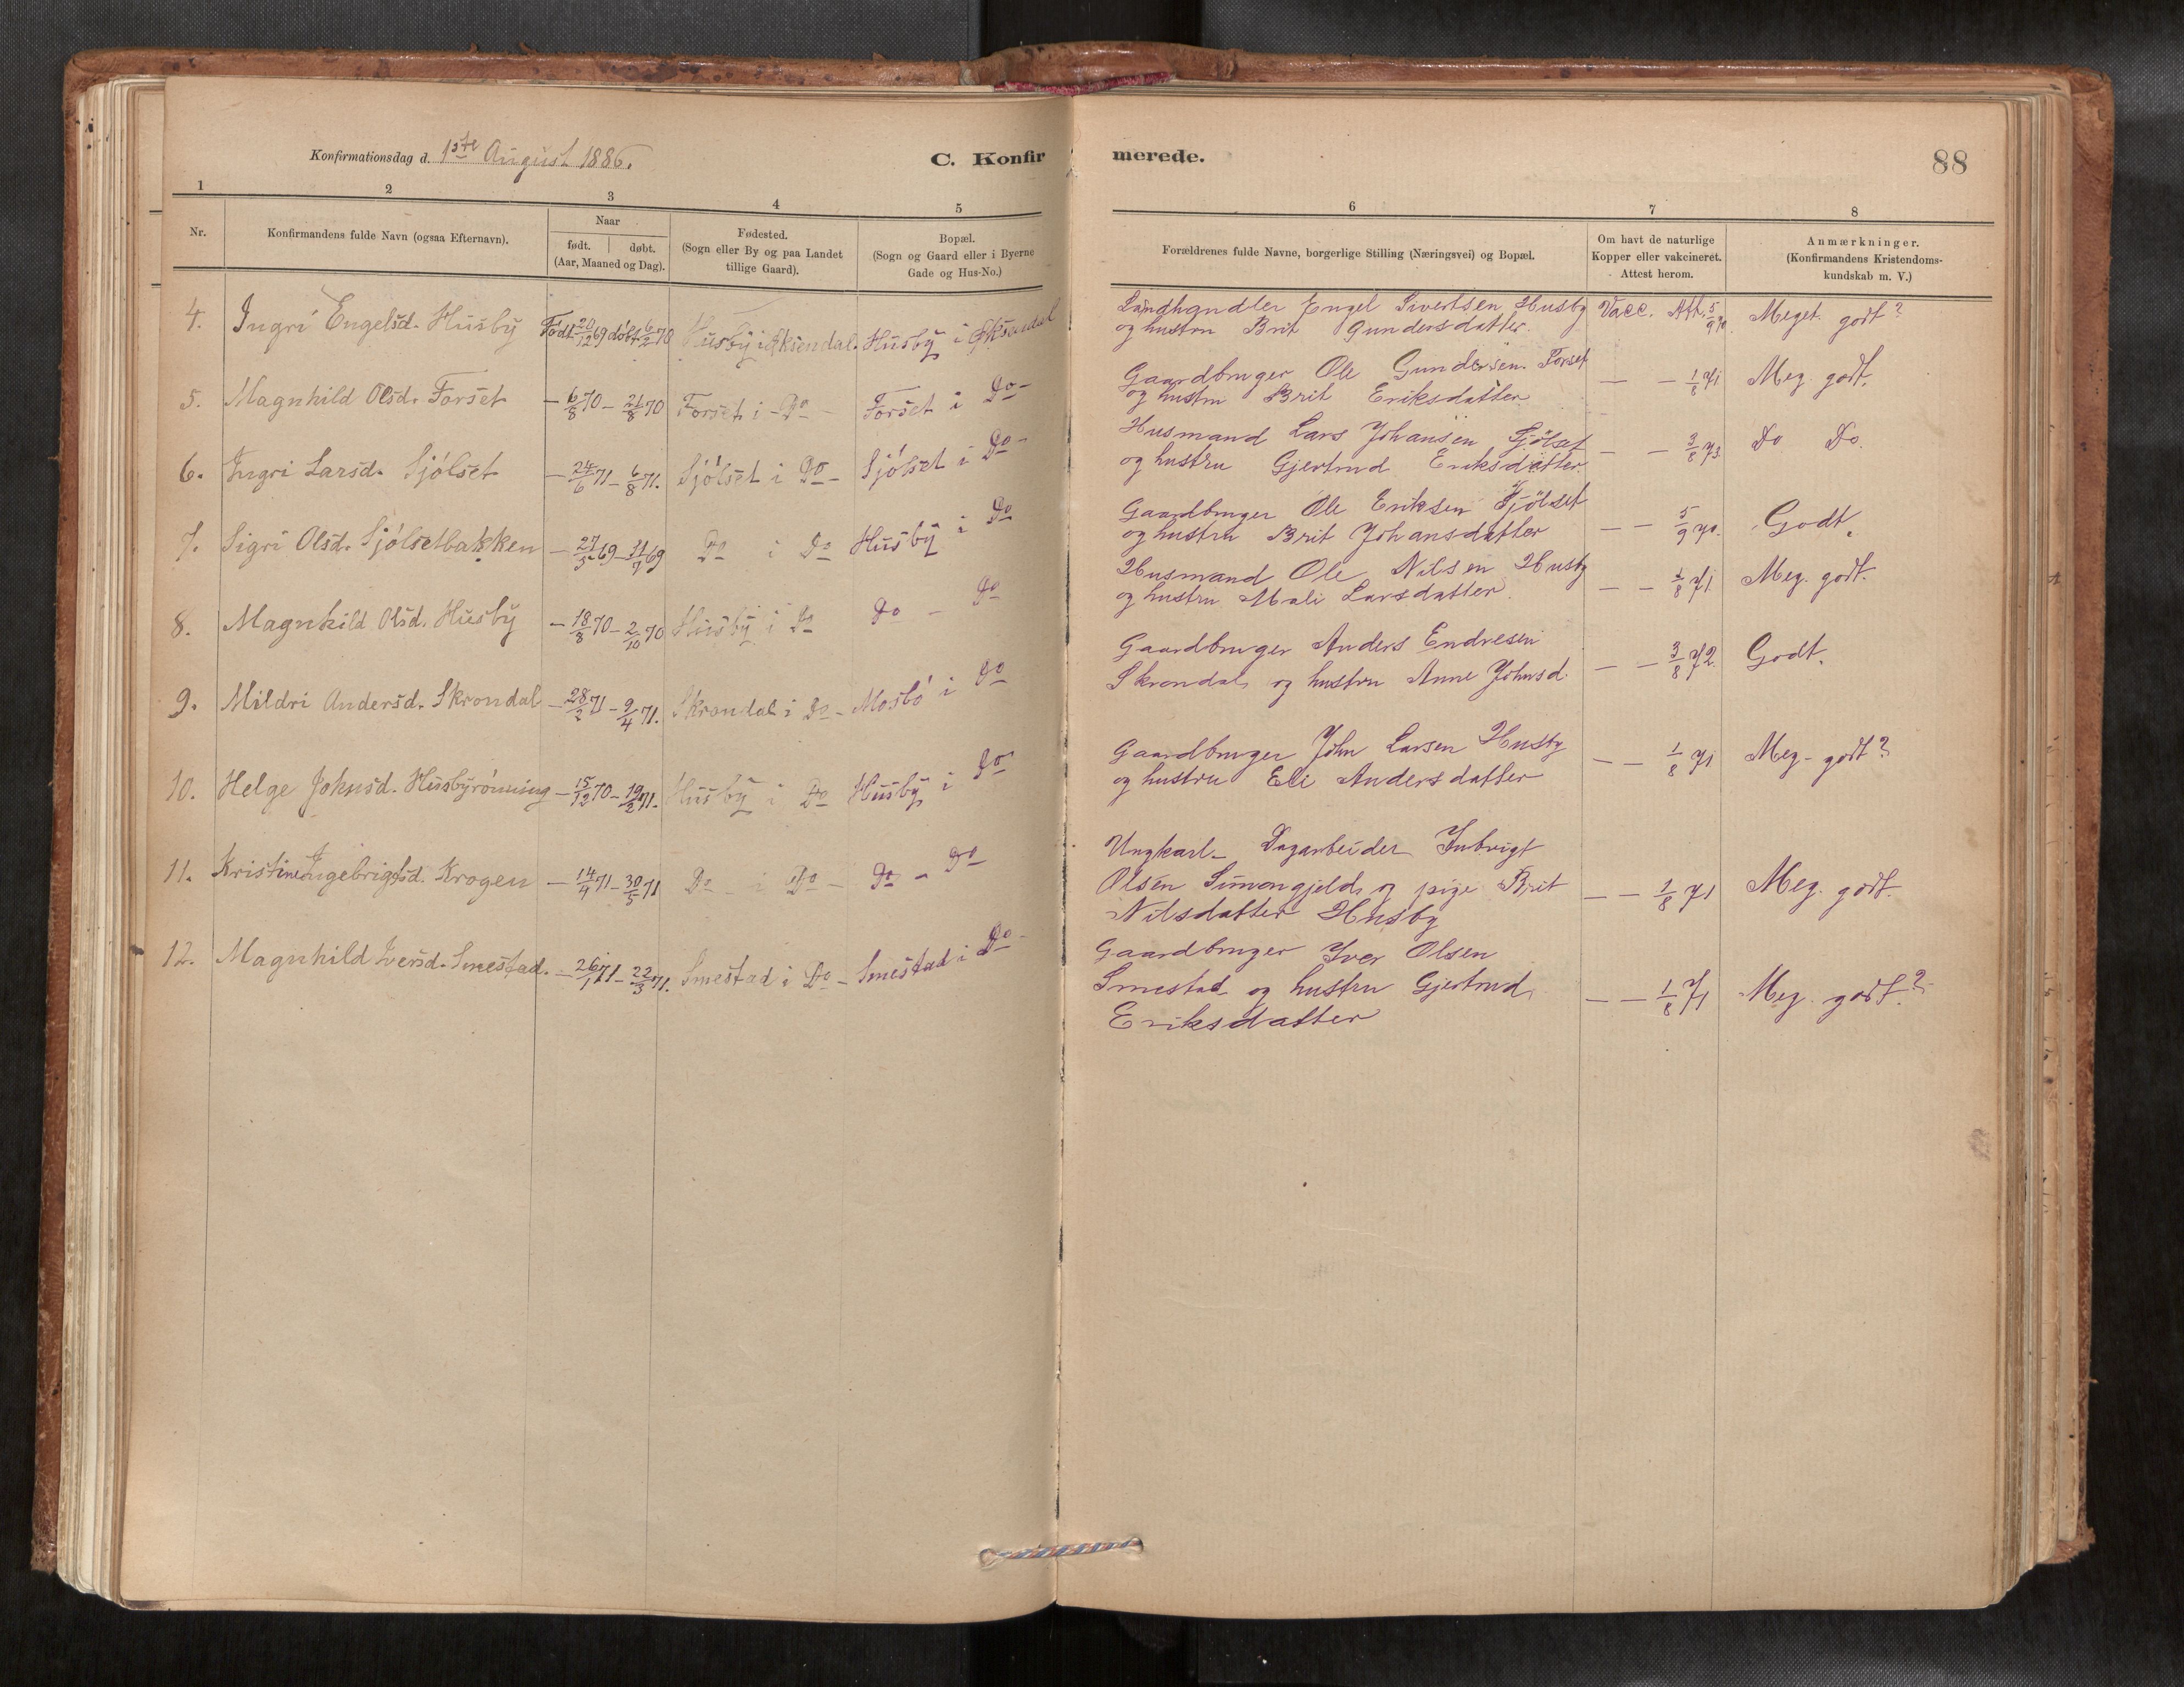 Konfirmationsdag d. 1ste August 1886.
C. Konfirmerede.
88
1 2 3 4 5 6 7 8
Nr.
Konfirmandens fulde Navn (ogsaa Efternavn).
Naar
født. døbt.
(Aar, Maaned og Dag).
Fødested.
(Sogn eller By og paa Landet
tillige Gaard).
Bopæl.
(Sogn og Gaard eller i Byerne
Gade og Hus-No.)
Forældrenes fulde Navne, borgerlige Stilling (Næringsvei) og Bopæl.
Om havt de naturlige
Kopper eller vakcineret.
Attest herom.
Anmærkninger.
(Konfirmandens Kristendoms-
kundskab m. V.)
4. Ingri Engelsd. Husby Født 20/12 69 döbt 6/2 70 Husby i Øksendal. Husby i Øksendal
Landhandler Engel Sivertsen Husby
og hustru Brit Gundersdatter.
Vacc. Att. 5/9 70 Meget godt?
5. Magnhild Olsd. Forset - 6/8 70 - 21/8 70 Forset i Do - Forset i Do -
Gaardbruger Ole Gundersen Forset
og hustru Brit Eriksdatter
- - 1/8 71 Meg godt.
6. Ingri Larsd. Sjölset - 24/6 71 - 6/8 71. Sjölset i Do - Sjölset i Do -
Husmand Lars Johansen Sjölset
og hustru Gjertrud Eriksdatter.
- - 3/8 73. Do Do.
7. Sigri Olsd. Sjölsetbakken - 27/5 69 - 11/7 69 Do i Do Husby i Do
Gaardbruger Ole Eriksen Sjölset
og hustru Brit Johansdatter
- - 5/9 70. Godt.
8. Magnhild Olsd. Husby - 18/8 70 - 2/10 70 Husby i Do Do - Do
Husmand Ole Nilsen Husby
og hustru Mali Larsdatter.
- - 1/8 71. Meg. godt.
9. Mildri Andersd. Skrondal - 28/2 71 - 9/4 71. Skrondal i Do - Mosbö i Do
Gaardbruger Anders Endresen
Skrondal og hustru Anne Johnsd.
- - 3/8 72. Godt.
10. Helge Johnsd. Husbyrönning - 15/12 70 - 19/2 71. Husby i Do Husby i Do
Gaardbruger John Larsen Husby
og hustru Eli Andersdatter
- - 1/8 71 Meg. godt?
11. Kristine Ingebrigtsd. Krogen - 14/4 71 - 30/5 71 Do - i Do - Do - Do
Ungkarl - Dagarbeider Inbrigt
Olsen Simongjeld og pige Brit
Nilsdatter Husby
- - 1/8 71 Meg. godt.
12. Magnhild Iversd. Smestad. - 26/1 71 - 22/3 71. Smestad i Do - Smestad i Do -
Gaardbruger Iver Olsen
Smestad og hustru Gjertrud
Eriksdatter
- - 1/8 71 Meg. godt.?